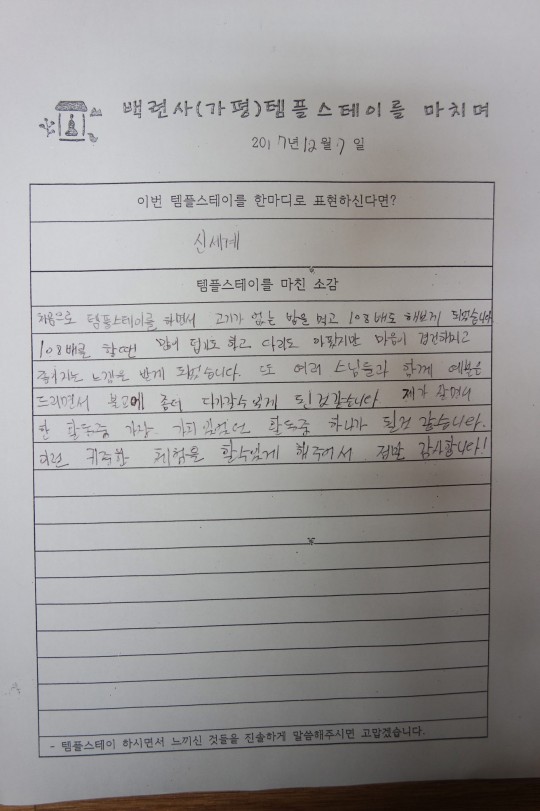 백련사(가평)템플스테이를 마치며
2017년 12월 7일
이번 템플스테이를 한마디로 표현하신다면?
신세계
템플스테이를 마친 소감
처음으로 템플스테이를 하면서 고기가 없는 밥을 먹고 108배도 해보게 되었습니다
108배를 할때 땀이 덥기도 하고 다리도 아팠지만 마음이 경건해지고
느낌을 받게 되었습니다. 또 여러 스님들과 함께 예불은
드리면서 불교에 좀더 다가갈수 있게 된것 같습니다 제가 살면서
한 활동중 가장 가치있었던 활동중 하나가 된것 같습니다.
이런 귀중한 체험을 할수있게 해주어서 정말 감사합니다!
- 템플스테이 하시면서 느끼신 것들을 진솔하게 말씀해주시면 고맙겠습니다.